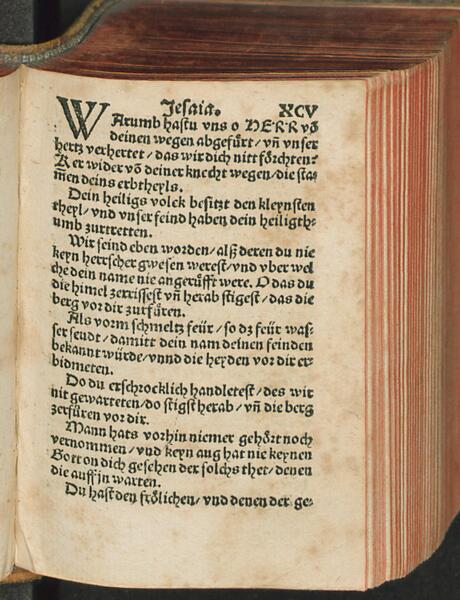 Jesaia. XCV
WArumb hastu vns o HERR võ
deinen wegen abgefürt / vñ vnser
hertz verhertet / das wir dich nitt förchten?
Ker wider võ deiner knecht wegen / die sta-
m̃en deins erbtheyls.
Dein heiligs volck besitzt den kleynsten
theyl / vnd vnser feind haben dein heiligth-
umb zurtretten.
Wir seind eben worden / alß deren du nie
keyn herrscher gwesen werest / vnd vber wel
che dein name nie angerüfft were. O das du
die himel zerrissest vñ herab stigest / das die
berg vor dir zurfüren.
Als vorm schmeltz feür / so dz feür was-
ser seudt / damitt dein nam deinen feinden
bekannt würde / vnnd die heyden vor dir er-
bidmeten.
Do du erschrocklich handletest / des wir
nit gewarteten / do stigst herab / vñ die berg
zerfüren vor dir.
Mann hats vorhin niemer gehört noch
vernommen / vnd keyn aug hat nie keynen
Gott on dich gesehen der solchs thet / denen
die auff jn warten.
Du hast den frölichen / vnd denen der ge-